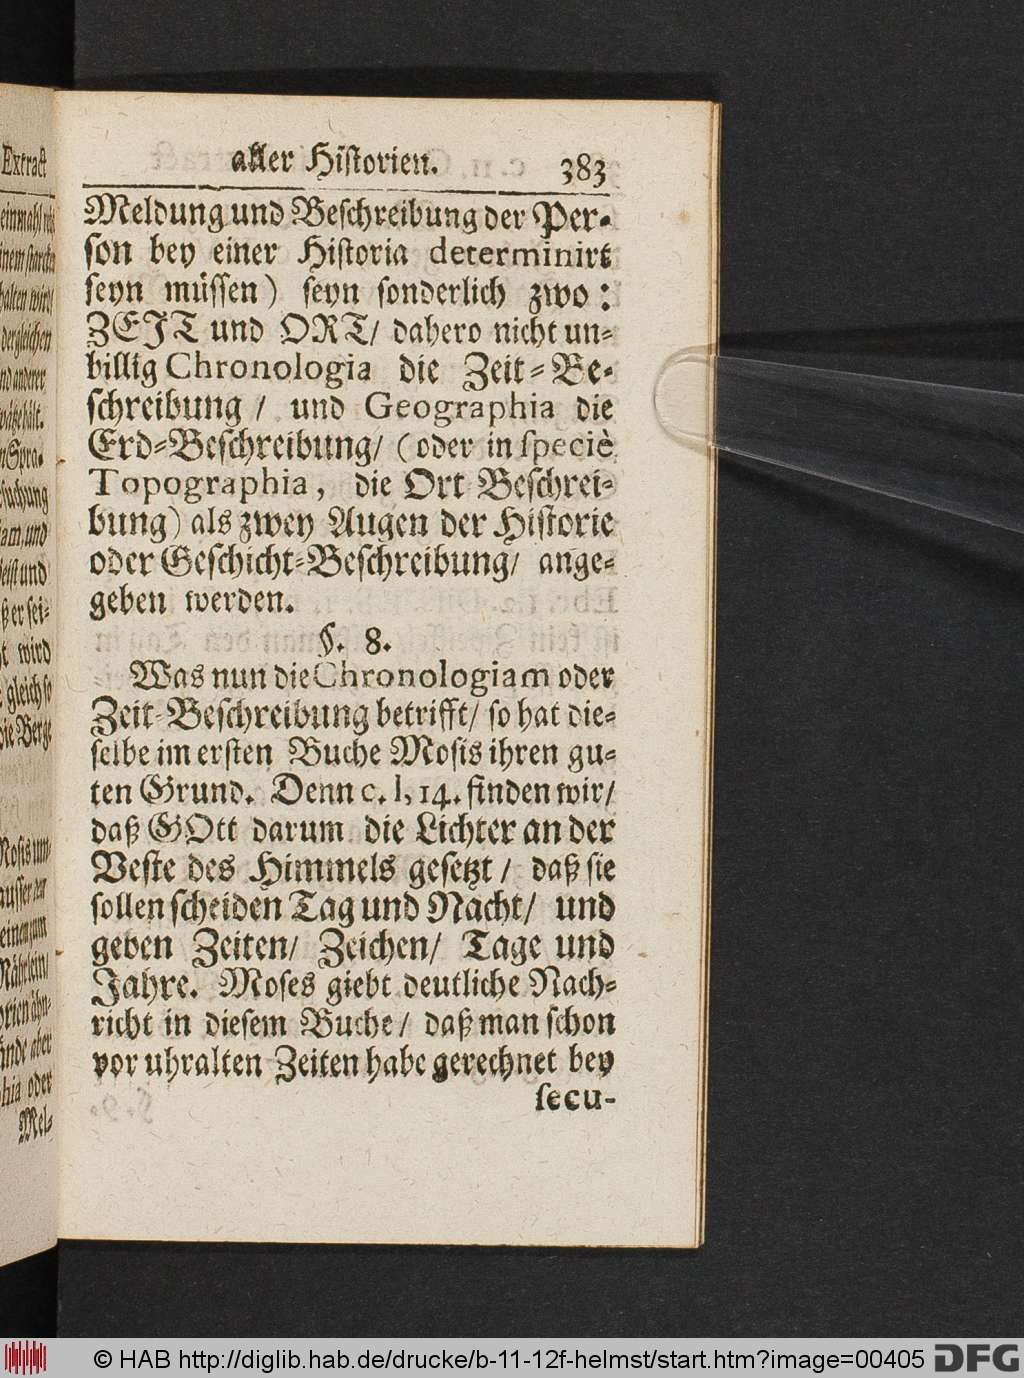 aller Historien. 383
Meldung und Beschreibung der Per-
son bey einer Historia determinirt
seyn müssen) seyn sonderlich zwo:
ZEJT und ORT/ dahero nicht un-
billig Chronologia die Zeit-Be-
schreibung / und Geographia die
Erd-Beschreibung/ (oder in speciè
Topographia, die Ort Beschrei-
bung) als zwey Augen der Historie
oder Geschicht-Beschreibung/ ange-
geben werden.
§. 8.
Was nun die Chronologiam oder
Zeit-Beschreibung betrifft/ so hat die-
selbe im ersten Buche Mosis ihren gu-
ten Grund. Denn c. I, 14. finden wir/
daß GOtt darum die Lichter an der
Veste des Himmels gesetzt / daß sie
sollen scheiden Tag und Nacht/ und
geben Zeiten/ Zeichen/ Tage und
Jahre. Moses giebt deutliche Nach-
richt in diesem Buche/ daß man schon
vor uhralten Zeiten habe gerechnet bey
secu-
Extract
dergleichen
und
wird
gleich so
die Berge
Mel-
© HAB http://diglib.hab.de/drucke/b-11-12f-helmst/start.htm?image=00405 DFG